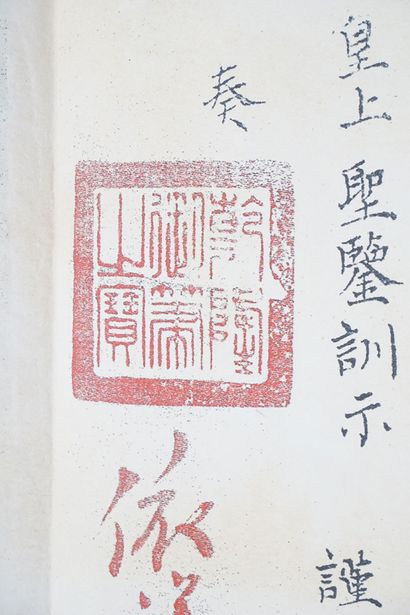 皇上聖鑒訓示 謹
奏
乾隆
御筆
之寶
依